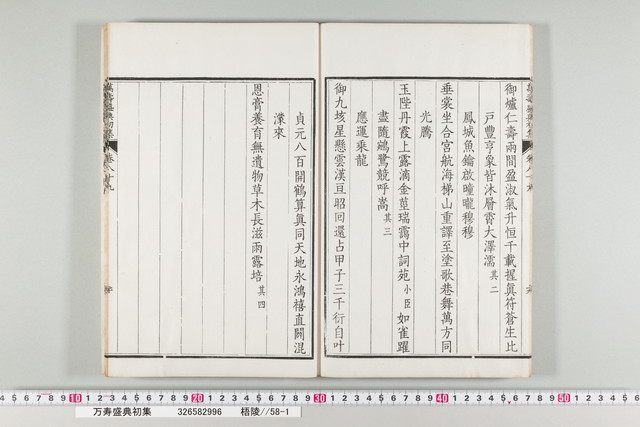 御爐仁壽兩間盈淑氣升恒千載握眞符蒼生比
戸豐亨象皆沐層霄大澤濡其二
鳳城魚鑰啟曈曨穆穆
垂裳坐合宮航海梯山重譯至塗歌巷舞萬方同
光騰
玉陛丹霞上露滴金莖瑞靄中詞苑小臣如雀躍
盡隨鵷鷺競呼嵩其三
應運乘龍
御九垓星懸雲漢亘昭回還占甲子三千衍自叶
貞元八百開鶴算眞同天地永鴻禧直闢混
濛來
恩膏養育無遺物草木長滋雨露培其四
万寿盛典初集 326582996 梧陵//58-1